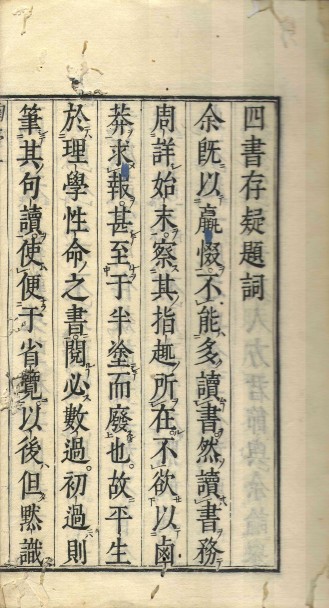 四書存疑題詞
余既以羸惙不能多讀書然讀書務
周詳始末察其指趣所在不欲以鹵
莽求報甚至于半塗而廢也故平生
於理學性命之書閱必數過初過則
筆其句讀使便于省覽以後但默識